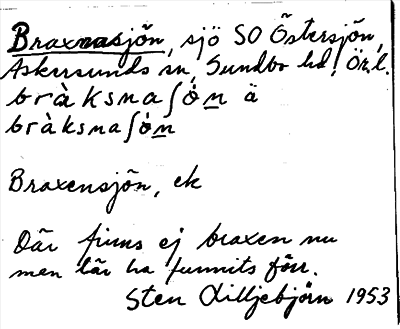 Braxnasjön, sjö SO Östersjön,
Askersunds sn, Sundbo hd, Ör.l.
bràksnaʃȯn ä
bràksnaʃȯn
Braxensjön, ek
Där finns ej braxen nu
men lär ha funnits förr.
Sten Lilljebjörn 1953